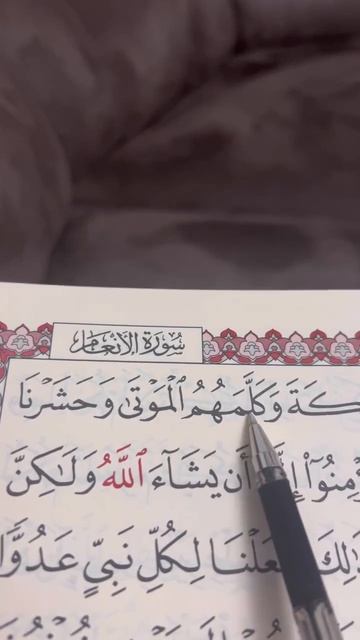 سُورَةُ الأَنْعَامِ
كَةَ وَكَلَّمَهُمُ ٱلْمَوْتَىٰ وَحَشَرْنَا
أَن يَشَآءَ ٱللَّهُ وَلَـٰكِنَّ
لِكُلِّ نَبِيٍّ عَدُوًّا